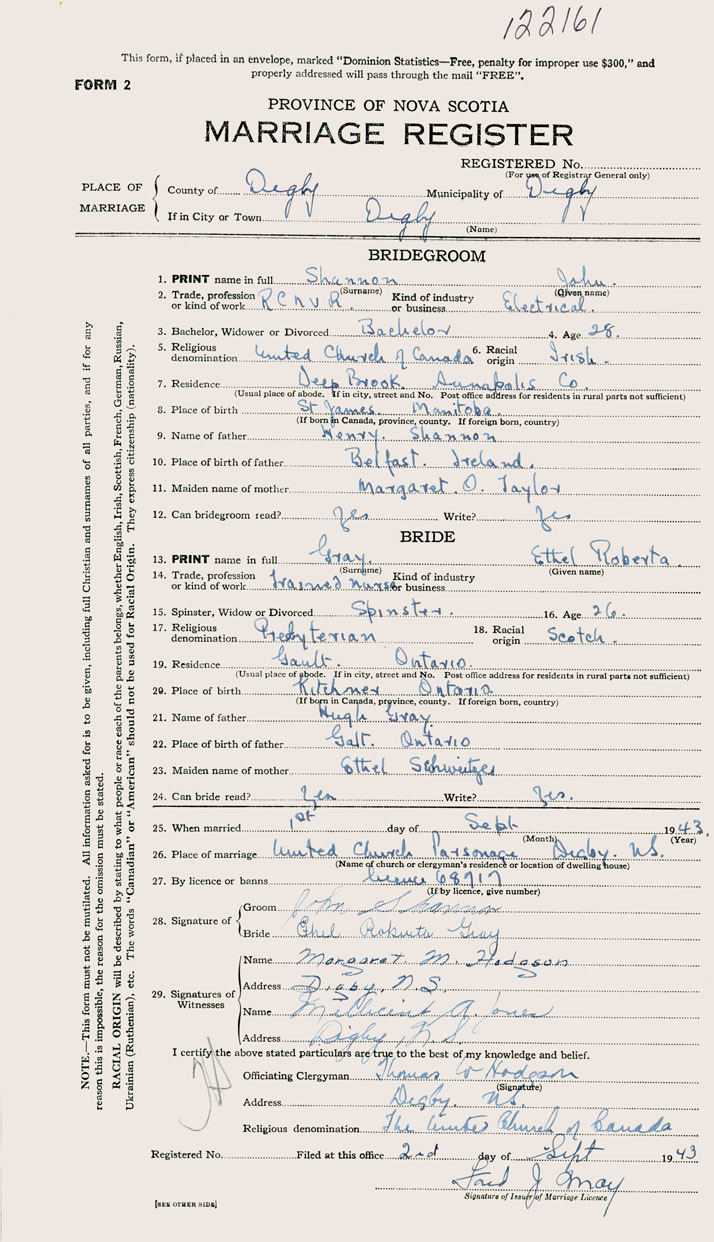 122161
This form, if placed in an envelope, marked "Dominion Statistics—Free, penalty for improper use $300," and
properly addressed will pass through the mail "FREE".
FORM 2
PROVINCE OF NOVA SCOTIA
MARRIAGE REGISTER
REGISTERED No.
(For use of Registrar General only)
PLACE OF MARRIAGE
County of Digby Municipality of Digby
If in City or Town Digby
(Name)
BRIDEGROOM
1. PRINT name in full Shannon John
(Surname) (Given name)
2. Trade, profession or kind of work R C N V R. Kind of industry or business Electrical.
3. Bachelor, Widower or Divorced Bachelor 4. Age 28.
5. Religious denomination United Church of Canada 6. Racial origin Irish.
7. Residence Deep Brook. Annapolis Co.
(Usual place of abode. If in city, street and No. Post office address for residents in rural parts not sufficient)
8. Place of birth St James. Manitoba.
(If born in Canada, province, county. If foreign born, country)
9. Name of father Henry. Shannon
10. Place of birth of father Belfast. Ireland.
11. Maiden name of mother Margaret. O. Taylor
12. Can bridegroom read? Yes Write? Yes
BRIDE
13. PRINT name in full Gray. Ethel Roberta.
(Surname) (Given name)
14. Trade, profession or kind of work trained nurse Kind of industry or business
15. Spinster, Widow or Divorced Spinster. 16. Age 26.
17. Religious denomination Presbyterian 18. Racial origin Scotch.
19. Residence Gault. Ontario.
(Usual place of abode. If in city, street and No. Post office address for residents in rural parts not sufficient)
20. Place of birth Kitchner Ontario
(If born in Canada, province, county. If foreign born, country)
21. Name of father Hugh Gray.
22. Place of birth of father Galt. Ontario
23. Maiden name of mother Ethel Schweitzer
24. Can bride read? Yes Write? Yes.
25. When married 1st day of Sept 1943.
(Month) (Year)
26. Place of marriage United Church Parsonage Digby. N.S.
(Name of church or clergyman's residence or location of dwelling house)
27. By licence or banns licence 68717
(If by licence, give number)
28. Signature of
Groom John Shannon
Bride Ethel Roberta Gray
29. Signatures of Witnesses
Name Margaret M. Hodgson
Address Digby, N.S.
Name Millicent A. Jones
Address Digby N.S.
I certify the above stated particulars are true to the best of my knowledge and belief.
Officiating Clergyman Thomas W Hodgson
(Signature)
Address Digby. N.S.
Religious denomination The United Church of Canada
Registered No. Filed at this office 2nd day of Sept 1943
Fred J May
Signature of Issuer of Marriage Licence
[SEE OTHER SIDE]
NOTE.—This form must not be mutilated. All information asked for is to be given, including full Christian and surnames of all parties, and if for any
reason this is impossible, the reason for the omission must be stated.
RACIAL ORIGIN will be described by stating to what people or race each of the parents belongs, whether English, Irish, Scottish, French, German, Russian,
Ukrainian (Ruthenian), etc. The words "Canadian" or "American" should not be used for Racial Origin. They express citizenship (nationality).